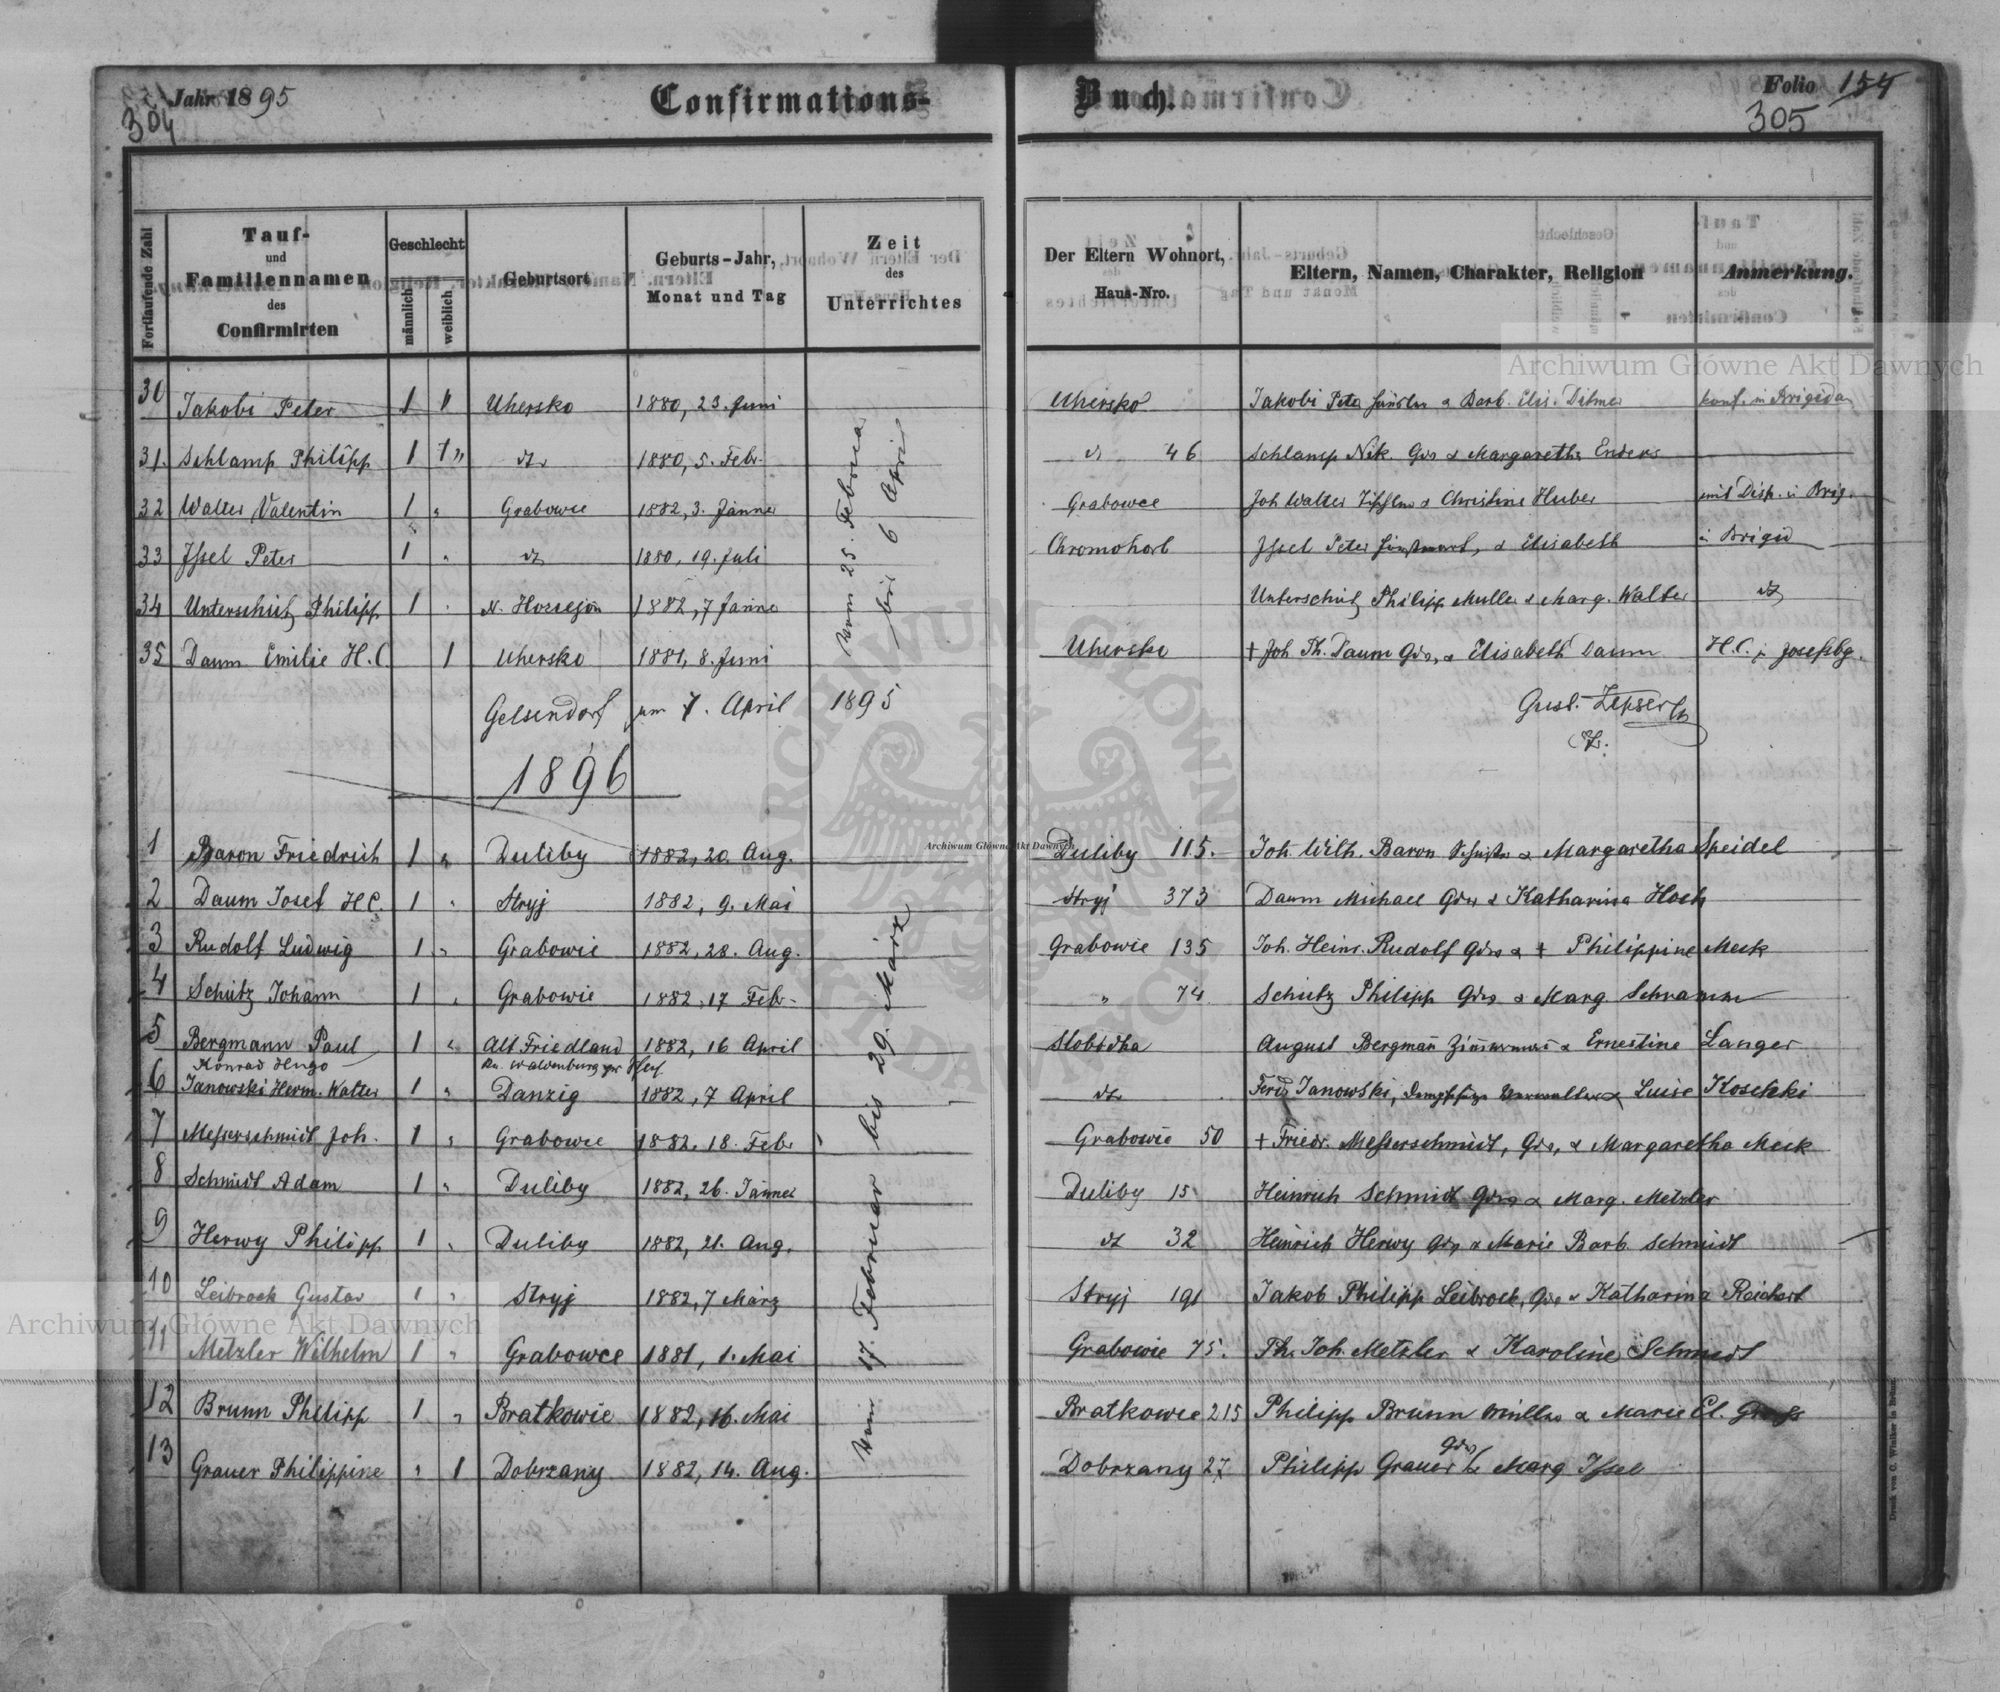 Jahr 1895 Confirmations- Buch. Folio 154
304 305
Fortlaufende Zahl
Tauf- und Familiennamen des Confirmirten
Geschlecht
männlich
weiblich
Geburtsort
Geburts-Jahr, Monat und Tag
Zeit des Unterrichtes
Der Eltern Wohnort, Haus-Nro.
Eltern, Namen, Charakter, Religion
Anmerkung.
30 Jakobi Peter 1 " Uhersko 1880, 23. Juni Uhersko Jakobi Peter & Barb. Elis. Ditmer konf. in Brigidau
31. Schlamp Philipp 1 " dto 1880, 5. Febr. dto 46 Schlamp Nik. Gds & Margaretha Enders
32 Walter Valentin 1 " Grabowce 1882, 3. Jänner Grabowce Joh Walter & Christine Huber mit Disp. in Brig.
33 Issel Peter 1 " dto 1880, 19. Juli Chromohorb Issel Peter & Elisabeth in Brigid
34 Unterschütz Philipp 1 " 1882, 7 Jänner Unterschütz Philipp Müller & Marg. Walter dto
35 Daum Emilie H.C 1 Uhersko 1881, 8. Juni Uhersko + Joh. Ph. Daum Gds, & Elisabeth Daum H.C. Josefsbg.
vom 25. Februar bis 6 April
Gelsendorf am 7. April 1895
1896
1 Baron Friedrich 1 " Duliby 1882, 20. Aug. Duliby 115. Joh. Wilh. Baron & Margaretha Speidel
2 Daum Josef HC. 1 " Stryj 1882, 9. Mai Stryj 373 Daum Michael Gds & Katharina Hoch
3 Rudolf Ludwig 1 " Grabowce 1882, 28. Aug. Grabowce 135 Joh. Heinr. Rudolf Gds & + Philippine Meck
4 Schütz Johann 1 " Grabowce 1882, 17 Febr. " 74 Schütz Philipp Gds & Marg. Schramm
5 Bergmann Paul 1 " Alt Friedland 1882, 16 April Slobodka August Bergmann Zimmermann & Ernestine Langer
Konrad Hugo
6 Janowski Herm. Walter 1 " Danzig 1882, 7 April dto Ferd Janowski, Verwalter & Luise Koschki
7 Messerschmidt Joh. 1 " Grabowce 1882, 18. Febr Grabowce 50 + Friedr. Messerschmidt, Gds, & Margaretha Meck
8 Schmidt Adam 1 " Duliby 1882, 26. Jänner Duliby 15 Heinrich Schmidt Gds & Marg. Metzler
9 Herwy Philipp 1 " Duliby 1882, 21. Aug. dto 32 Heinrich Herwy Gds & Marie Barb. Schmidt
10 Leibrock Gustav 1 " Stryj 1882, 7 März Stryj 191 Jakob Philipp Leibrock, Gds & Katharina Reichert
11 Metzler Wilhelm 1 " Grabowce 1881, 1. Mai Grabowce 75. Ph. Joh. Metzler & Karoline Schmidt
12 Brunn Philipp 1 " Bratkowce 1882, 16. Mai Bratkowce 215 Philipp Brunn Müller & Marie El. Gross
13 Grauer Philippine " 1 Dobrzany 1882, 14. Aug. Dobrzany 27 Philipp Grauer Gds & Marg Issel
vom 17. Februar bis 29. März
Druck von C. Winiker in Brünn.
Archiwum Główne Akt Dawnych
Archiwum Główne Akt Dawnych
Archiwum Główne Akt Dawnych